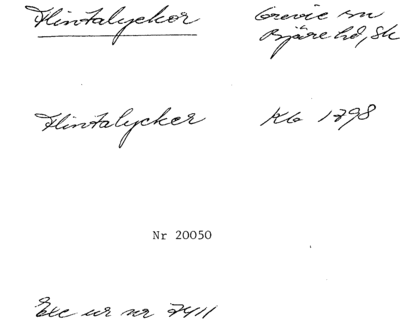 Flintalyckor Grevie sn
Bjäre hd, Sk
Flintalycker Kb 1798
Nr 20050
Exc ur nr 7411